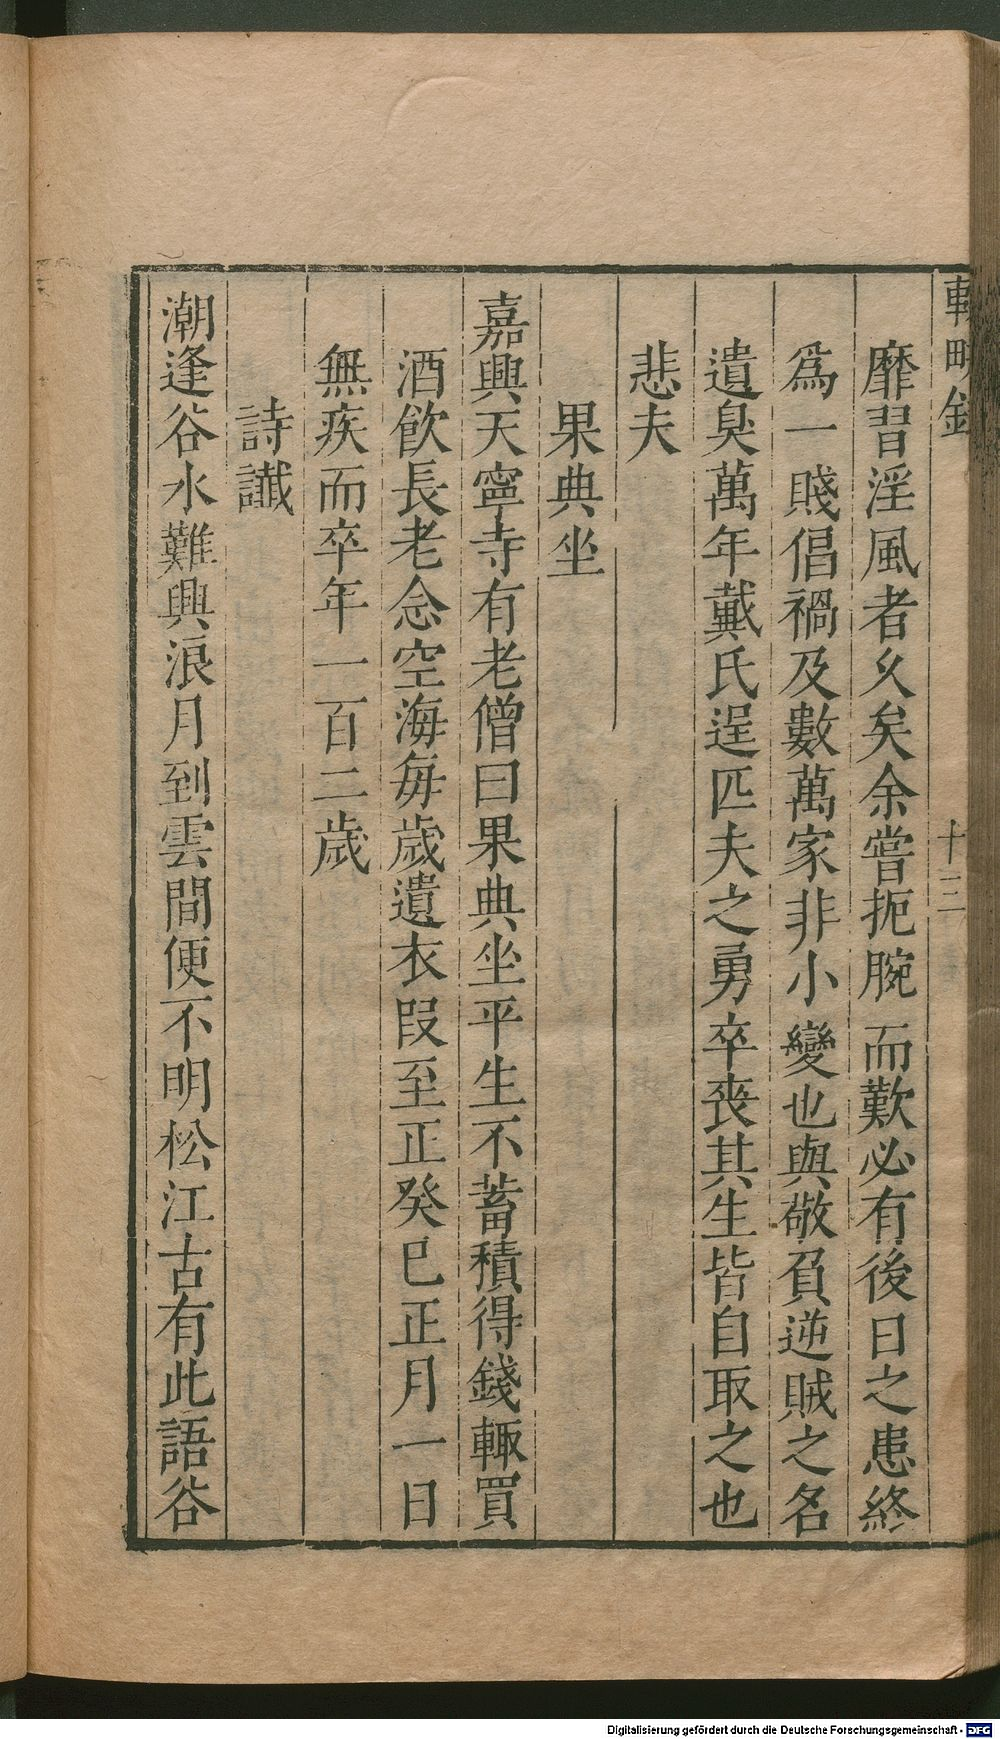 靡習淫風者久矣余嘗扼腕而歎必有後日之患終
爲一賤倡禍及數萬家非小變也與敬負逆賊之名
遺臭萬年戴氏逞匹夫之勇卒喪其生皆自取之也
悲夫
果典坐
嘉興天寧寺有老僧曰果典坐平生不蓄積得錢輙買
酒飲長老念空海每歲遺衣叚至正癸巳正月一日
無疾而卒年一百二歲
詩讖
潮逢谷水難興浪月到雲間便不明松江古有此語谷
十三
Digitalisierung gefördert durch die Deutsche Forschungsgemeinschaft - DFG